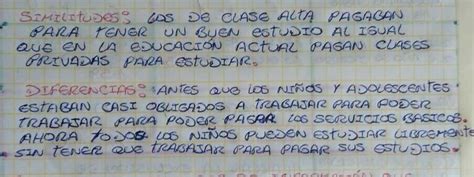 SIMILITUDES: LOS DE CLASE ALTA PAGABAN
PARA TENER UN BUEN ESTUDIO AL IGUAL
QUE EN LA EDUCACIÓN ACTUAL PAGAN CLASES
PRIVADAS PARA ESTUDIAR.
DIFERENCIAS: ANTES QUE LOS NIÑOS Y ADOLESCENTES
ESTABAN CASI OBLIGADOS A TRABAJAR PARA PODER
TRABAJAR PARA PODER PAGAR LOS SERVICIOS BASICOS.
AHORA TODOS LOS NIÑOS PUEDEN ESTUDIAR LIBREMENTE
SIN TENER QUE TRABAJAR PARA PAGAR SUS ESTUDIOS.